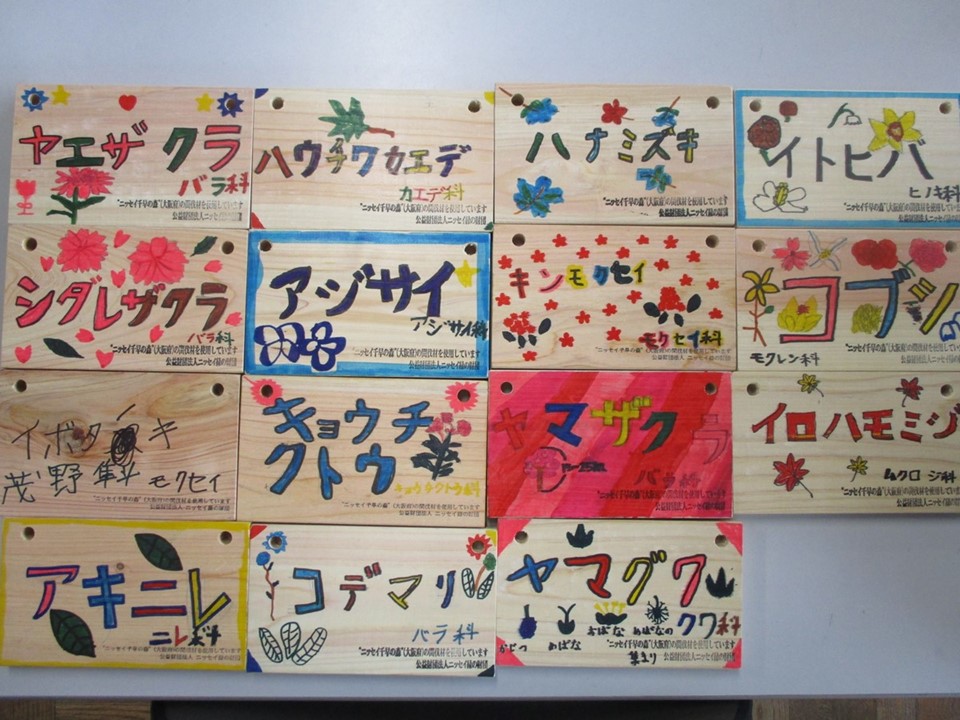 ヤエザクラ
バラ科
"ニッセイ千早の森"(大阪府)の間伐材を使用しています
公益財団法人ニッセイ緑の財団
ハウチワカエデ
カエデ科
"ニッセイ千早の森"(大阪府)の間伐材を使用しています
公益財団法人ニッセイ緑の財団
ハナミズキ
"ニッセイ千早の森"(大阪府)の間伐材を使用しています
公益財団法人ニッセイ緑の財団
イトヒバ
ヒノキ科
"ニッセイ千早の森"(大阪府)の間伐材を使用しています
公益財団法人ニッセイ緑の財団
シダレザクラ
バラ科
"ニッセイ千早の森"(大阪府)の間伐材を使用しています
公益財団法人ニッセイ緑の財団
アジサイ
アジサイ科
"ニッセイ千早の森"(大阪府)の間伐材を使用しています
公益財団法人ニッセイ緑の財団
キンモクセイ
モクセイ科
"ニッセイ千早の森"(大阪府)の間伐材を使用しています
公益財団法人ニッセイ緑の財団
コブシ
モクレン科
"ニッセイ千早の森"(大阪府)の間伐材を使用しています
公益財団法人ニッセイ緑の財団
イボタ キ
茂野隼斗 モクセイ
"ニッセイ千早の森"(大阪府)の間伐材を使用しています
公益財団法人ニッセイ緑の財団
キョウチ
クトウ
キョウチクトウ科
"ニッセイ千早の森"(大阪府)の間伐材を使用しています
公益財団法人ニッセイ緑の財団
ヤマザクラ
バラ科
"ニッセイ千早の森"(大阪府)の間伐材を使用しています
公益財団法人ニッセイ緑の財団
イロハモミジ
ムクロジ科
"ニッセイ千早の森"(大阪府)の間伐材を使用しています
公益財団法人ニッセイ緑の財団
アキニレ
ニレ科
"ニッセイ千早の森"(大阪府)の間伐材を使用しています
公益財団法人ニッセイ緑の財団
コデマリ
バラ科
"ニッセイ千早の森"(大阪府)の間伐材を使用しています
公益財団法人ニッセイ緑の財団
ヤマグワ
クワ科
おばな
めばな
"ニッセイ千早の森"(大阪府)の間伐材を使用しています
公益財団法人ニッセイ緑の財団